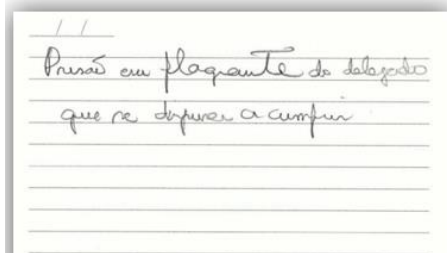 Prisão em flagrante do delegado
que se dispuser a cumprir